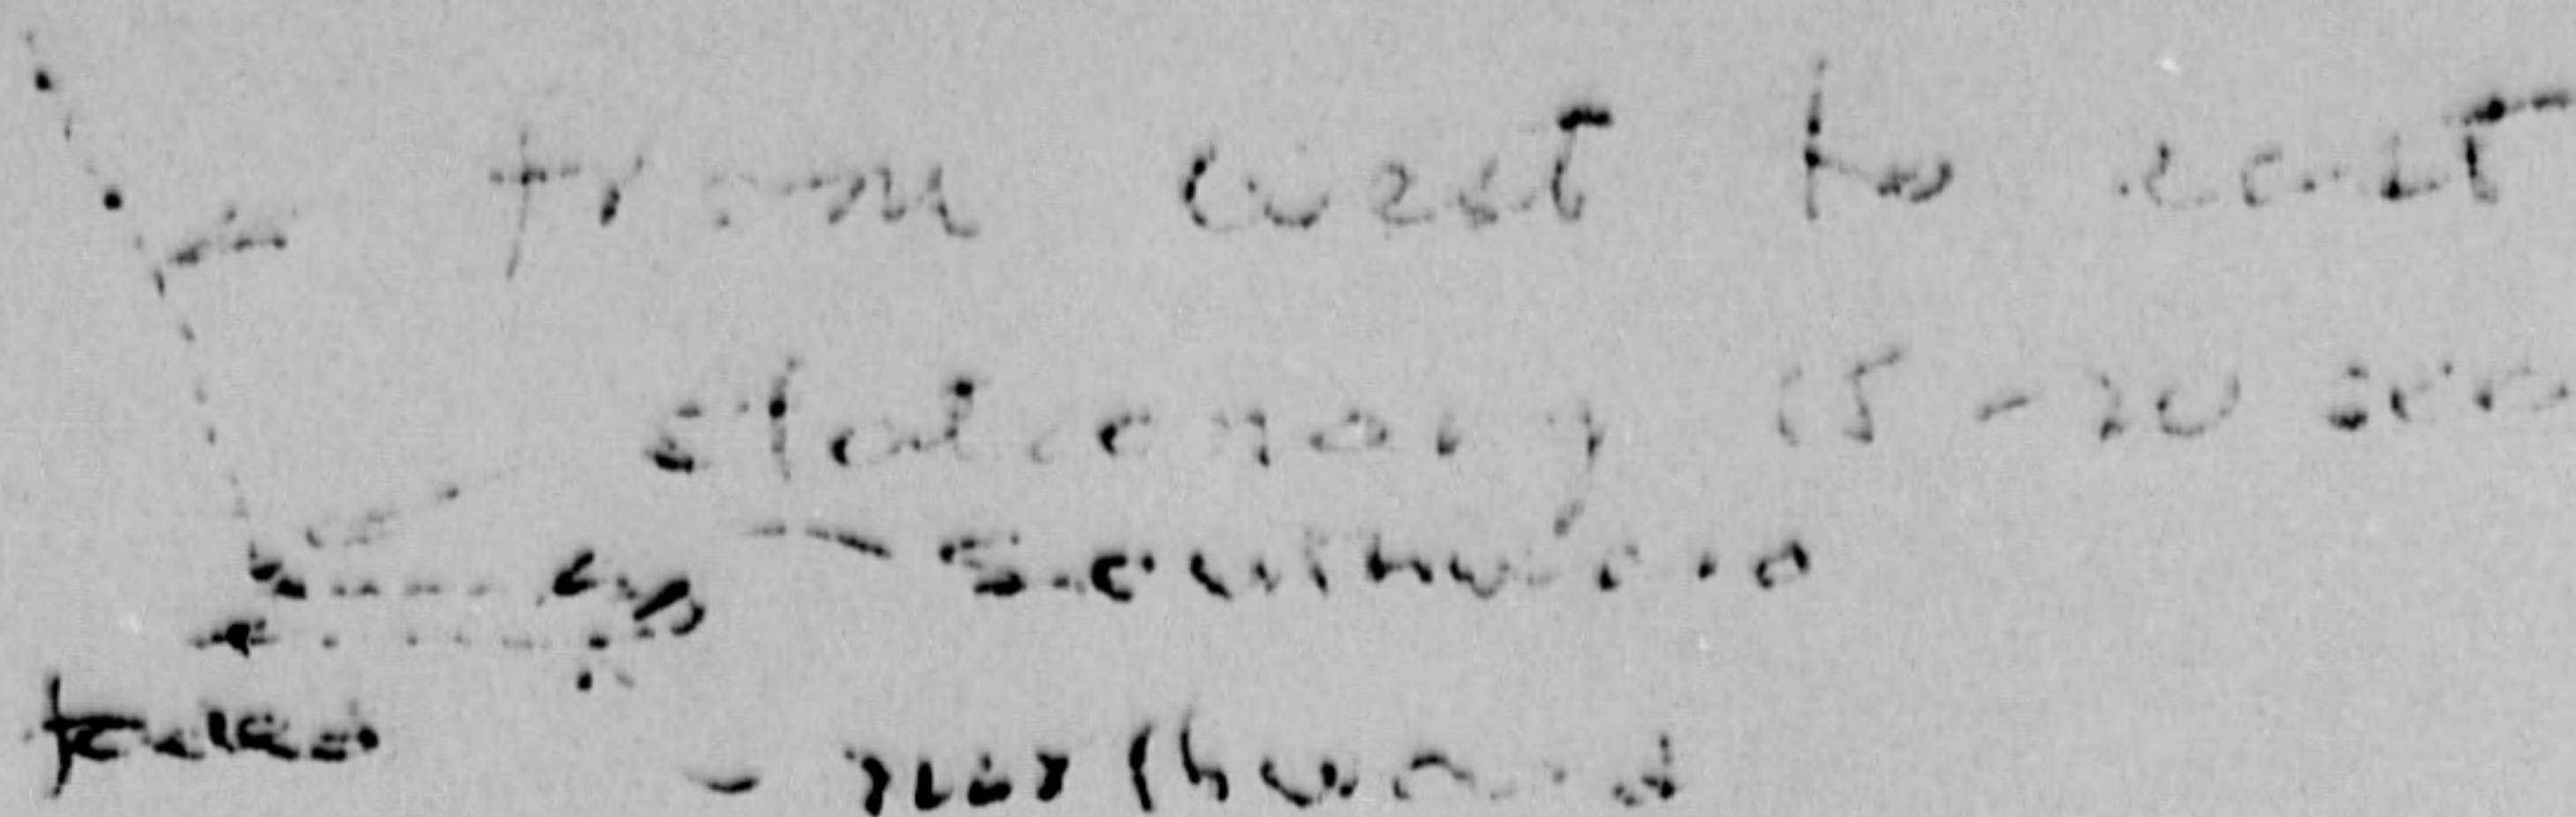 from west to east
stationary 15-20 secs
southward
- northward